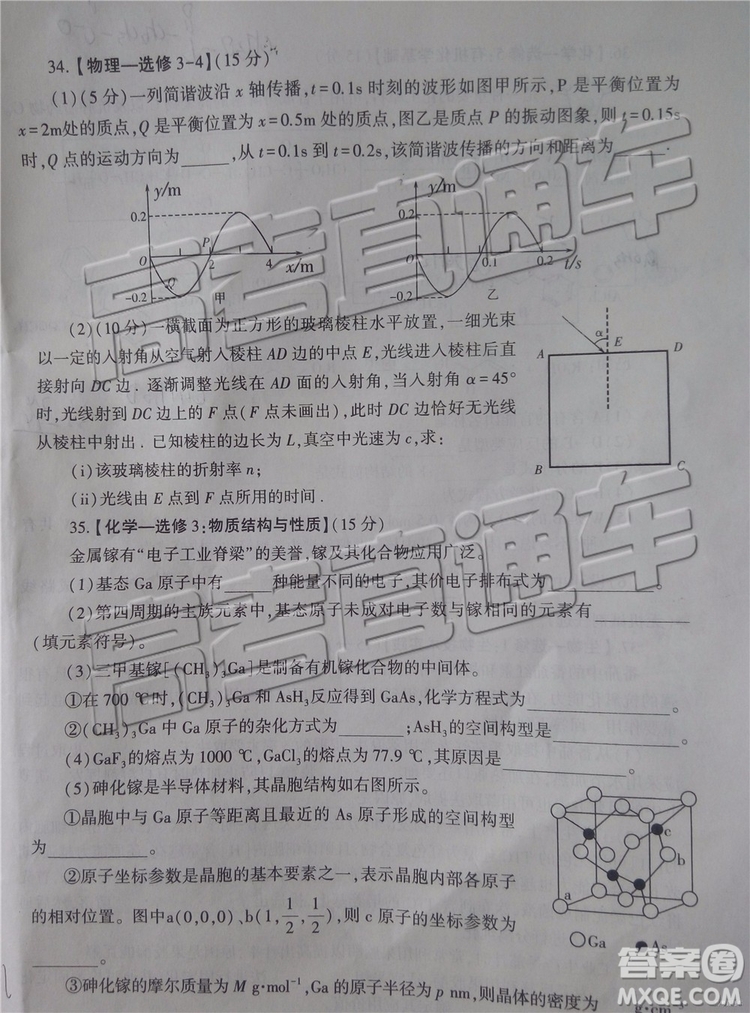 34.【物理—选修3-4】(15分)
(1)(5分)一列简谐波沿x轴传播,t=0.1s时刻的波形如图甲所示,P是平衡位置为
x=2m处的质点,Q是平衡位置为x=0.5m处的质点,图乙是质点P的振动图象,则t=0.15s
时,Q点的运动方向为______,从t=0.1s到t=0.2s,该简谐波传播的方向和距离为______.
y/m
0.2
O
-0.2
Q
P
2
4
x/m
甲
y/m
0.2
O
-0.2
0.1
0.2
t/s
乙
(2)(10分)一横截面为正方形的玻璃棱柱水平放置,一细光束
以一定的入射角从空气射入棱柱AD边的中点E,光线进入棱柱后直
接射向DC边.逐渐调整光线在AD面的入射角,当入射角α=45°
时,光线射到DC边上的F点(F点未画出),此时DC边恰好无光线
从棱柱中射出.已知棱柱的边长为L,真空中光速为c,求:
(i)该玻璃棱柱的折射率n;
(ii)光线由E点到F点所用的时间.
α
E
A
D
B
C
35.【化学—选修3:物质结构与性质】(15分)
金属镓有“电子工业脊梁”的美誉,镓及其化合物应用广泛。
(1)基态Ga原子中有______种能量不同的电子,其价电子排布式为______。
(2)第四周期的主族元素中,基态原子未成对电子数与镓相同的元素有______
(填元素符号)。
(3)三甲基镓[(CH₃)₃Ga]是制备有机镓化合物的中间体。
①在700℃时,(CH₃)₃Ga和AsH₃反应得到GaAs,化学方程式为______。
②(CH₃)₃Ga中Ga原子的杂化方式为______;AsH₃的空间构型是______。
(4)GaF₃的熔点为1000℃,GaCl₃的熔点为77.9℃,其原因是______。
(5)砷化镓是半导体材料,其晶胞结构如右图所示。
①晶胞中与Ga原子等距离且最近的As原子形成的空间构型
为______。
②原子坐标参数是晶胞的基本要素之一,表示晶胞内部各原子
的相对位置。图中a(0,0,0)、b(1,1/2,1/2),则c原子的坐标参数为
______。
③砷化镓的摩尔质量为M g·mol⁻¹,Ga的原子半径为p nm,则晶体的密度为______g·cm⁻³
a
b
c
Ga
As
高考直通车
高考直通车
答案圈